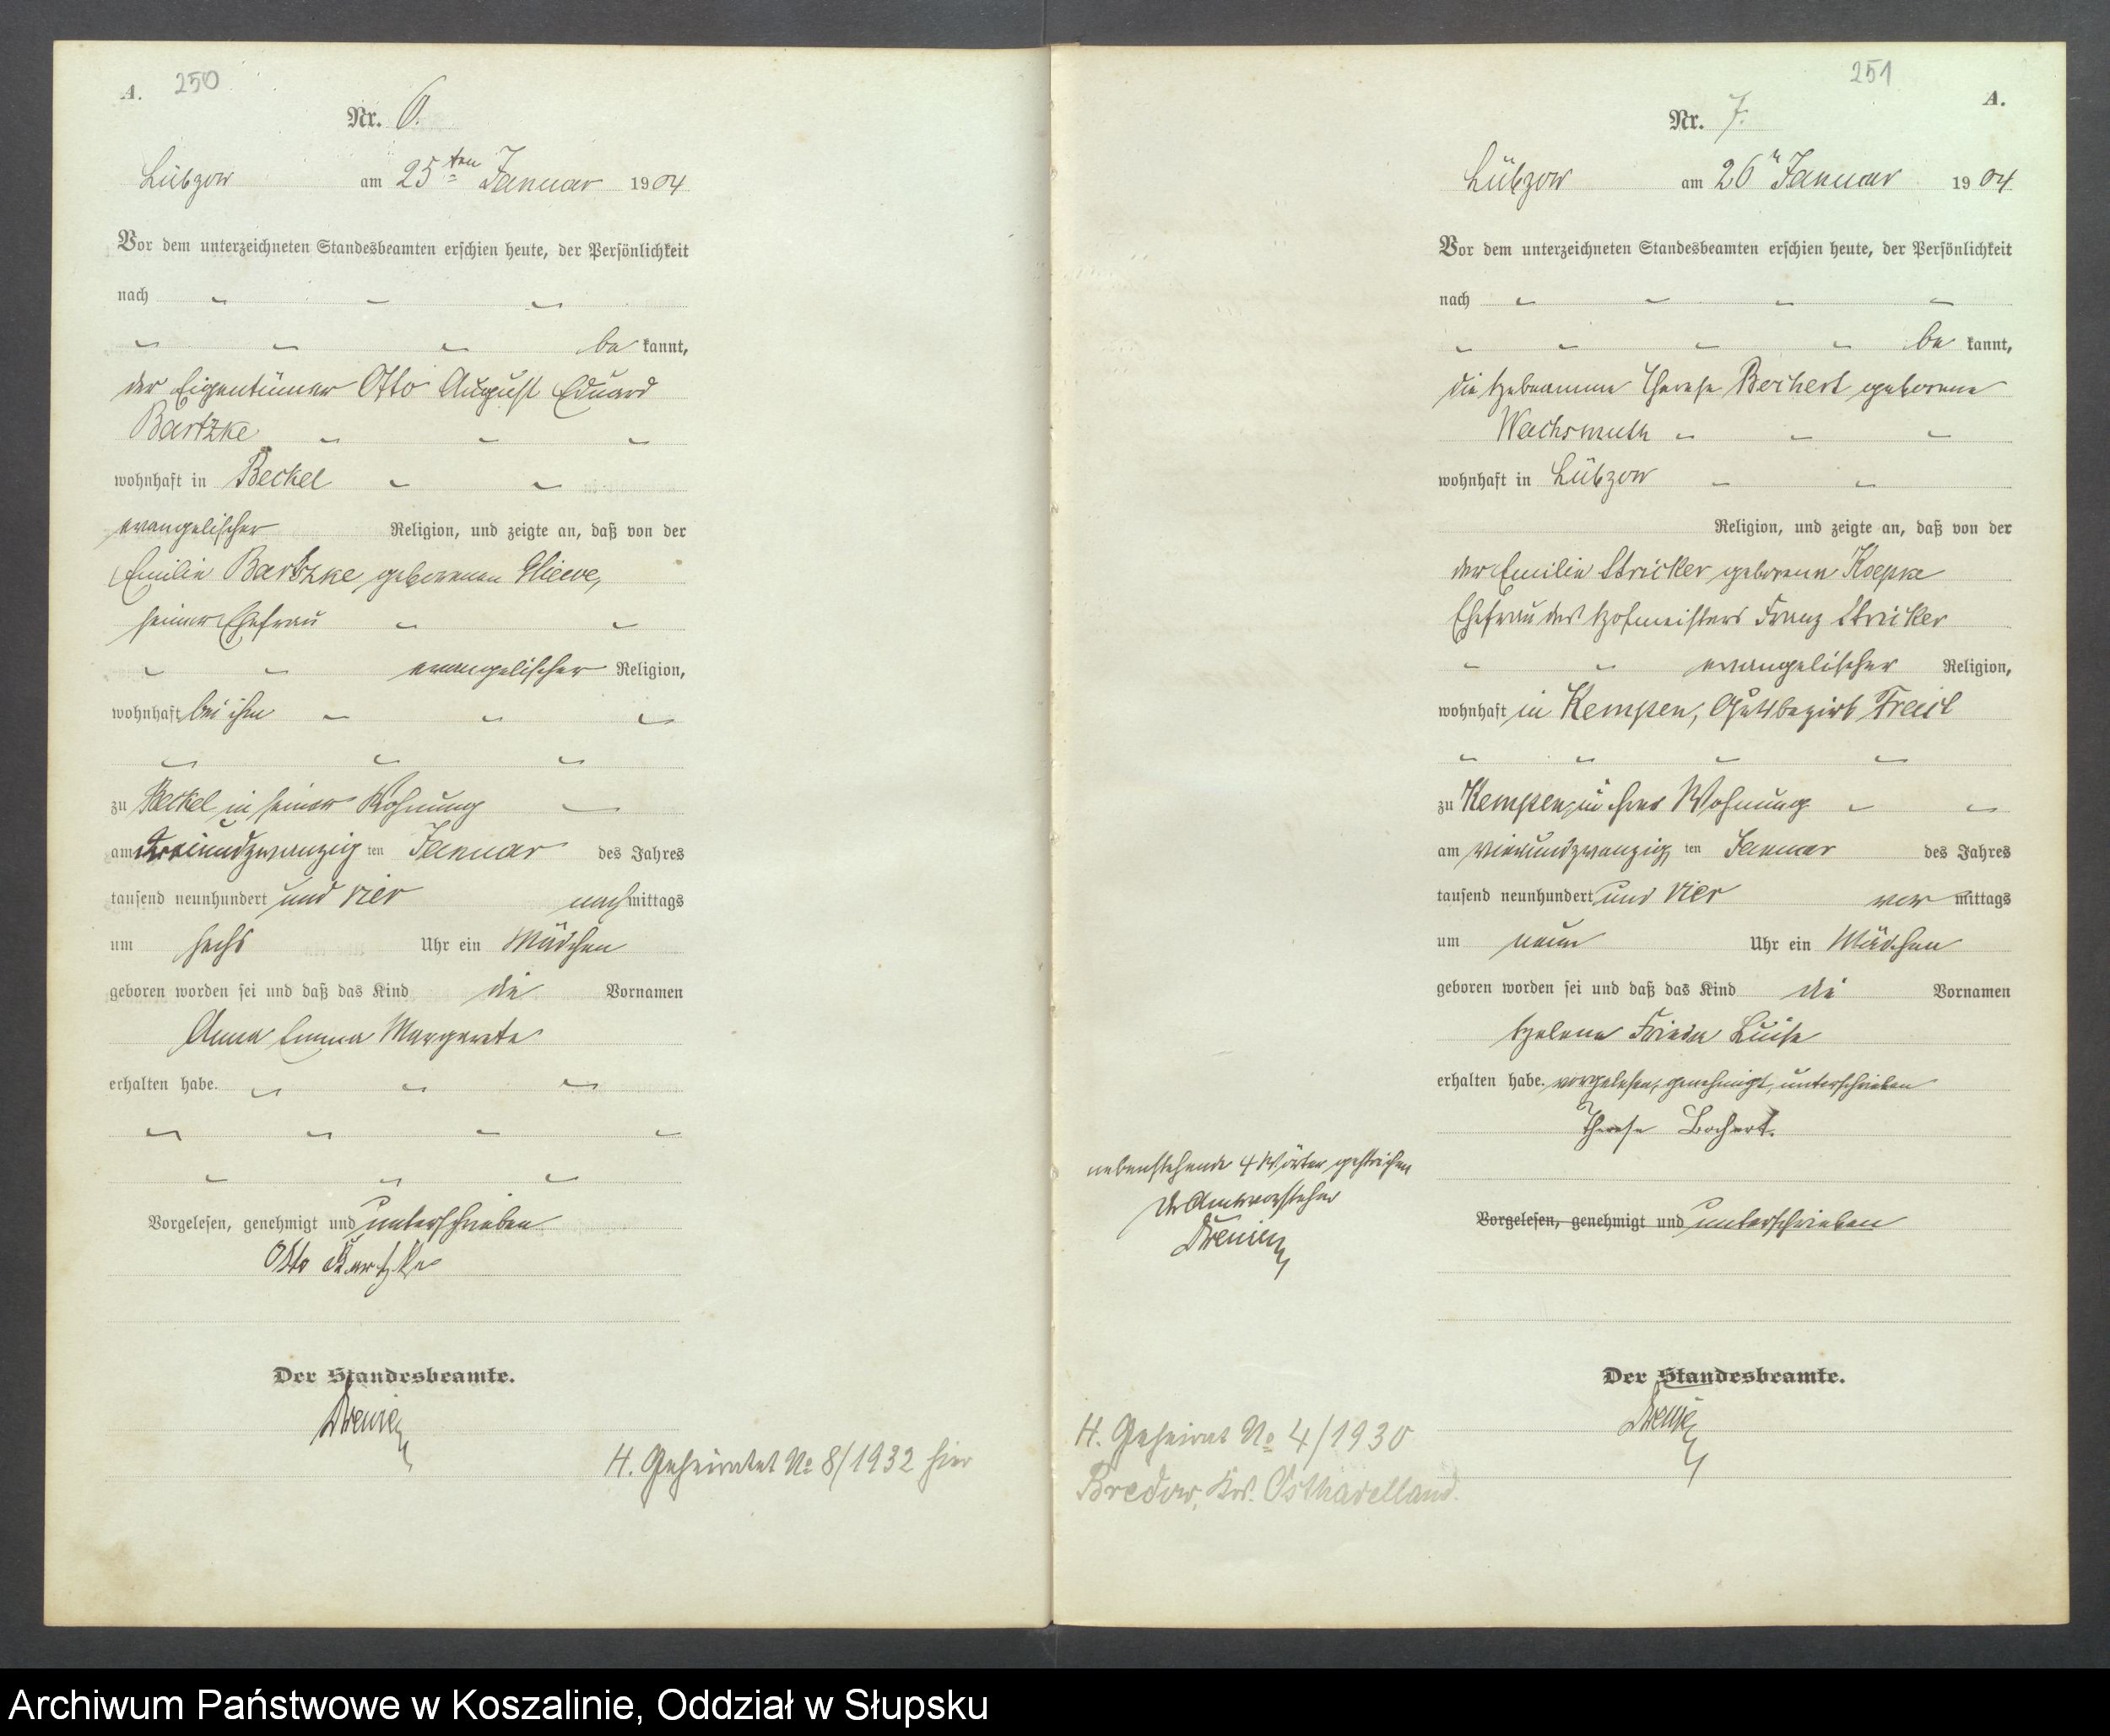 A. 250
Nr. 6.
Lübzow am 25ten Januar 1904
Vor dem unterzeichneten Standesbeamten erschien heute, der Persönlichkeit
nach
be kannt,
der Eigentümer Otto August Eduard
Bartzke
wohnhaft in Beckel
evangelischer Religion, und zeigte an, daß von der
Emilie Bartzke geborenen Gliewe,
seiner Ehefrau
evangelischer Religion,
wohnhaft bei ihm
zu Beckel in seiner Wohnung
am dreiundzwanzig ten Januar des Jahres
tausend neunhundert und vier nachmittags
um sechs Uhr ein Mädchen
geboren worden sei und daß das Kind die Vornamen
Anna Emma Margarete
erhalten habe.
Vorgelesen, genehmigt und unterschrieben
Otto Bartzke
Der Standesbeamte.
H. Geheiratet No 8/1932 hier
251 A.
Nr. 7.
Lübzow am 26n Januar 1904
Vor dem unterzeichneten Standesbeamten erschien heute, der Persönlichkeit
nach
be kannt,
die Hebeamme Therese Bochert geborene
Wachsmuth
wohnhaft in Lübzow
Religion, und zeigte an, daß von der
der Emilie Stricker geborene Koepke
Ehefrau des Hofmeisters Franz Stricker
evangelischer Religion,
wohnhaft in Kempen, Gutsbezirk Freist
zu Kempen, in ihrer Wohnung
am vierundzwanzig ten Januar des Jahres
tausend neunhundert und vier vor mittags
um neun Uhr ein Mädchen
geboren worden sei und daß das Kind die Vornamen
Helene Frieda Luise
erhalten habe. vorgelesen, genehmigt, unterschrieben
Therese Bochert.
nebenstehende 4 Wörter gestrichen
Dr Amtsvorsteher
Vorgelesen, genehmigt und unterschrieben
Der Standesbeamte.
H. Geheirat No 4/1930
Bredow, Krs. Osthavelland.
Archiwum Państwowe w Koszalinie, Oddział w Słupsku